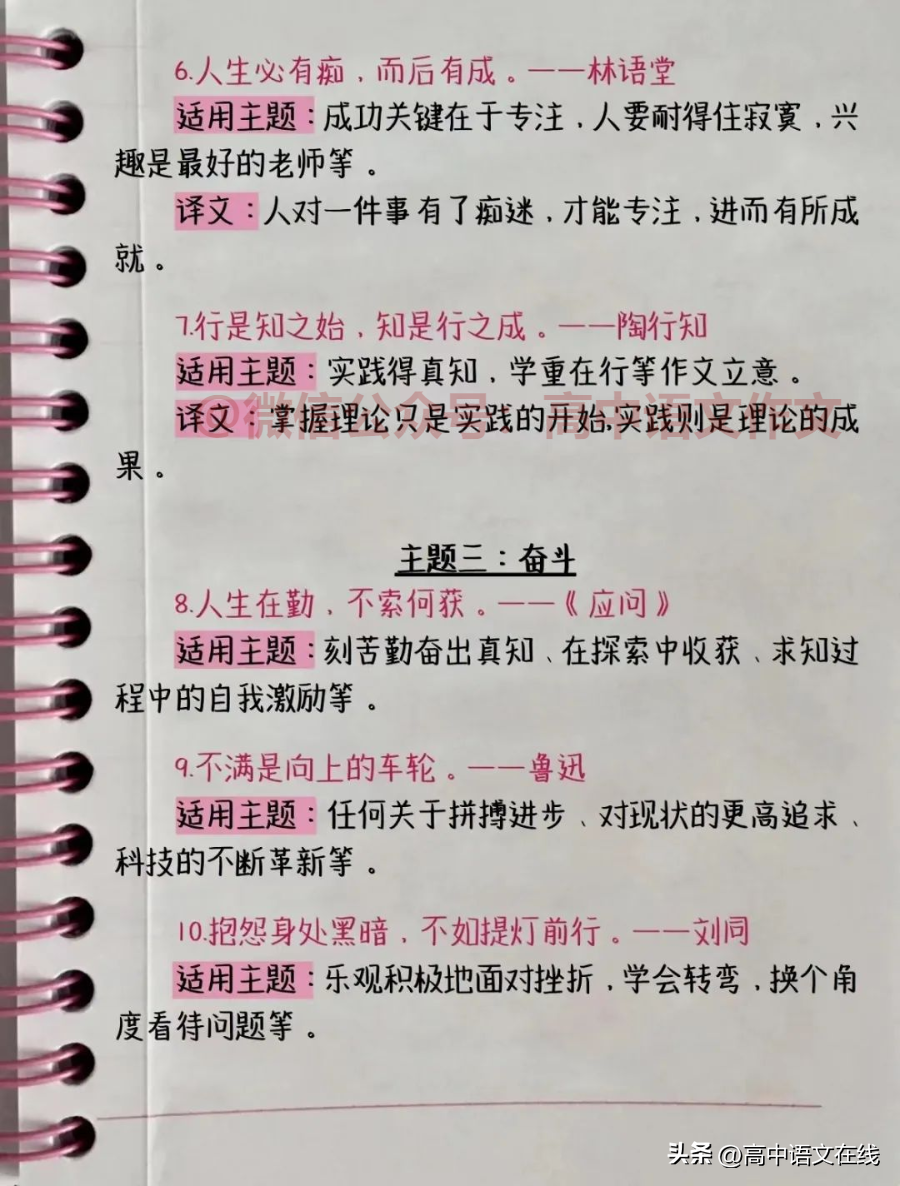 6.人生必有痴，而后有成。——林语堂
适用主题：成功关键在于专注，人要耐得住寂寞，兴
趣是最好的老师等。
译文：人对一件事有了痴迷，才能专注，进而有所成
就。
7.行是知之始，知是行之成。——陶行知
适用主题：实践得真知，学重在行等作文立意。
译文：掌握理论只是实践的开始，实践则是理论的成
果。
@微信公众号：高中语文作文
主题三：奋斗
8.人生在勤，不索何获。——《应问》
适用主题：刻苦勤奋出真知、在探索中收获、求知过
程中的自我激励等。
9.不满是向上的车轮。——鲁迅
适用主题：任何关于拼搏进步、对现状的更高追求、
科技的不断革新等。
10.抱怨身处黑暗，不如提灯前行。——刘同
适用主题：乐观积极地面对挫折，学会转弯，换个角
度看待问题等。
头条 @高中语文在线